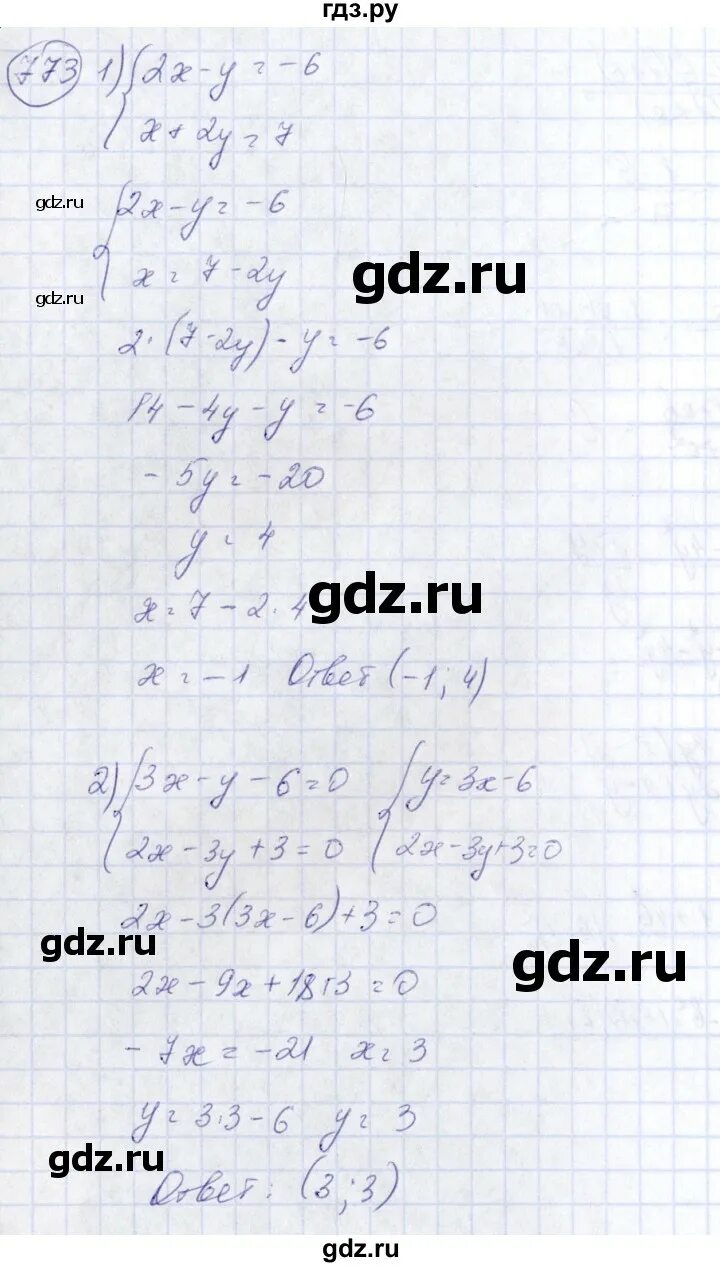 гдз.ру
773 1) { 2x - y = -6
x + 2y = 7
gdz.ru
{ 2x - y = -6
x = 7 - 2y
gdz.ru
gdz.ru
2·(7-2y) - y = -6
14 - 4y - y = -6
- 5y = -20
y = 4
gdz.ru
x = 7 - 2·4
x = -1 Ответ (-1; 4)
2) { 3x - y - 6 = 0 { y = 3x - 6
2x - 3y + 3 = 0 2x - 3y + 3 = 0
2x - 3(3x - 6) + 3 = 0
gdz.ru
gdz.ru
2x - 9x + 18 + 3 = 0
- 7x = -21 x = 3
y = 3·3 - 6 y = 3
gdz.ru
Ответ: (3; 3)
gdz.ru